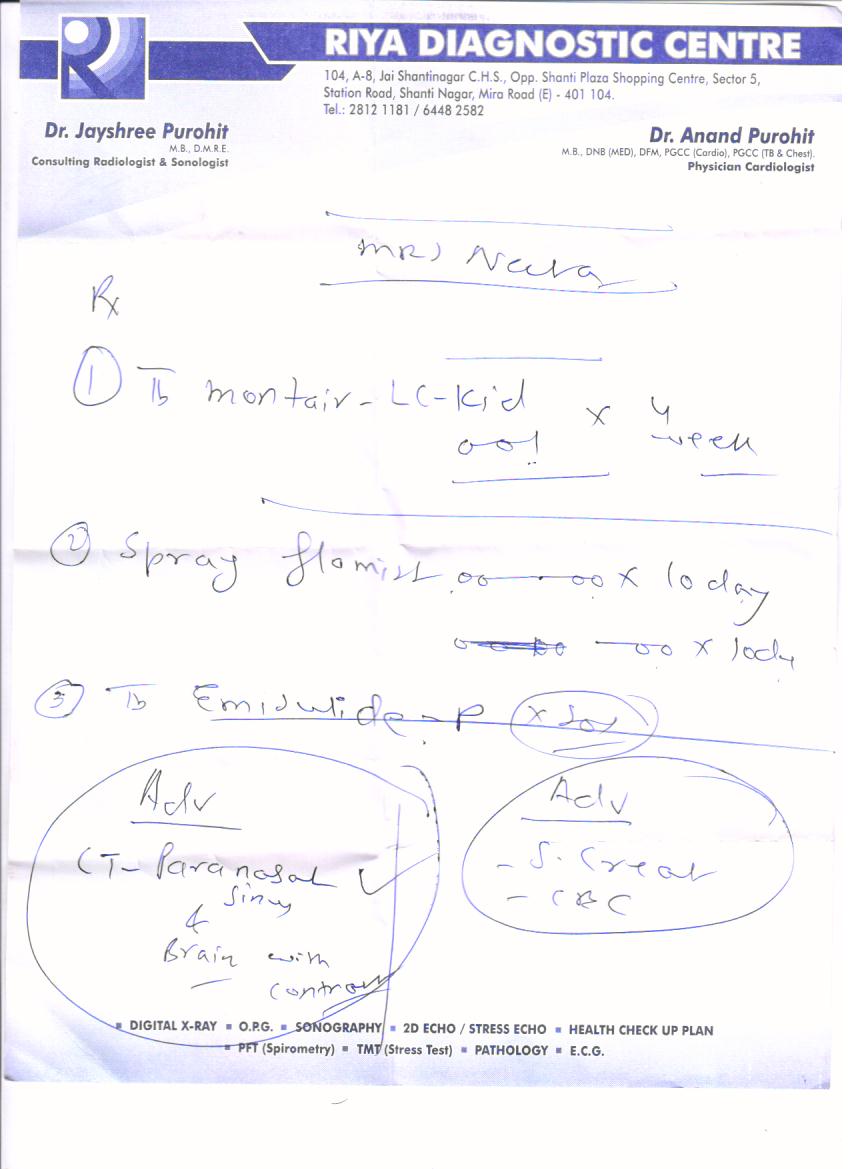 RIYA DIAGNOSTIC CENTRE
104, A-8, Jai Shantinagar C.H.S., Opp. Shanti Plaza Shopping Centre, Sector 5,
Station Road, Shanti Nagar, Mira Road (E) - 401 104.
Tel.: 2812 1181 / 6448 2582
Dr. Jayshree Purohit
M.B., D.M.R.E.
Consulting Radiologist & Sonologist
Dr. Anand Purohit
M.B., DNB (MED), DFM, PGCC (Cardio), PGCC (TB & Chest).
Physician Cardiologist
MRS
Rx
① Tb montair - LC-Kid x 4
001 week
② Spray flomist 00 — 00 x 10 day
00 x 10 dy
③ Tb P
Adv
CT- Paranasal
Sinus
&
Brain with
contrast
Adv
- S. Creat
- CBC
▪ DIGITAL X-RAY ▪ O.P.G. ▪ SONOGRAPHY ▪ 2D ECHO / STRESS ECHO ▪ HEALTH CHECK UP PLAN
▪ PFT (Spirometry) ▪ TMT (Stress Test) ▪ PATHOLOGY ▪ E.C.G.